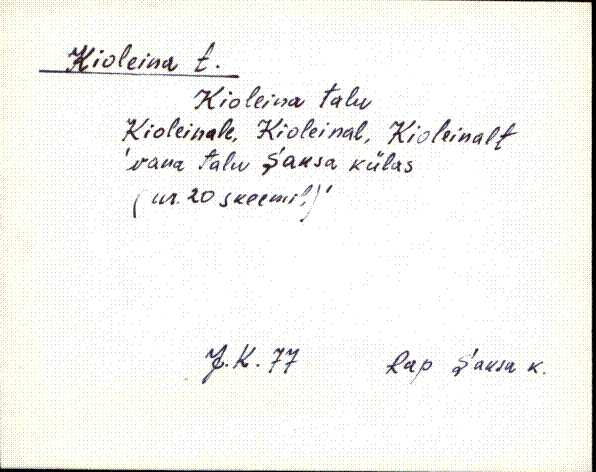 Kioleina t.
Kioleina talu
Kioleinale, Kioleinal, Kioleinalt
'vana talu S'aksa külas
(nr. 20 skeemil)'
J.K. 77 Rap S'aksa k.